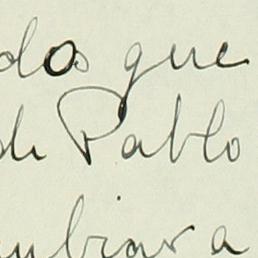 dos que
de Pablo
mbiar a